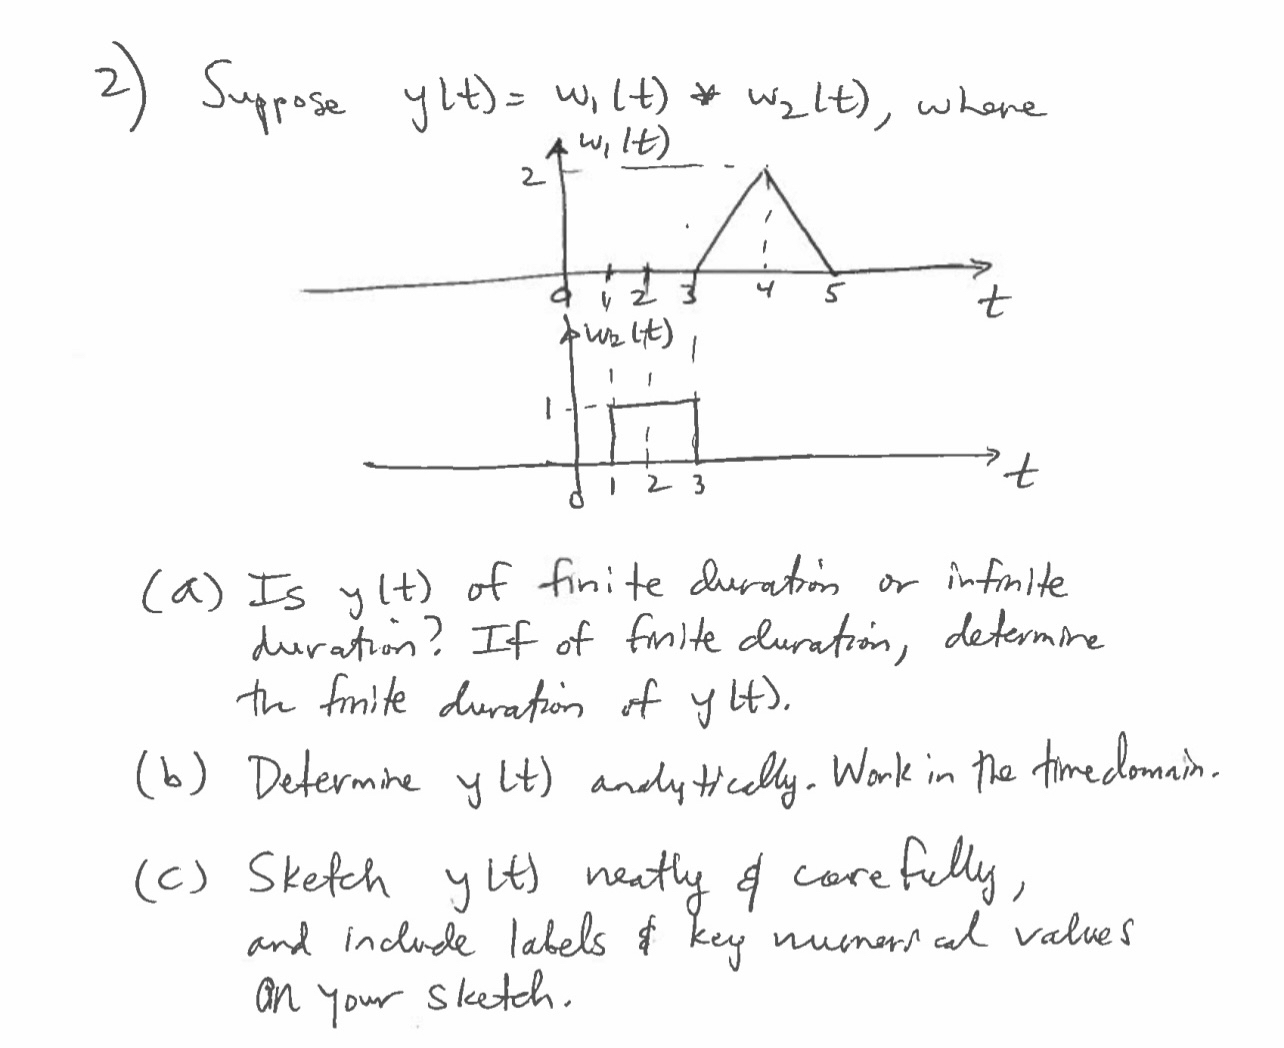 2) Suppose y(t) = w₁(t) * w₂(t), where
w₁(t)
2
0 1 2 3 4 5 t
w₂(t)
1
0 1 2 3 t
(a) Is y(t) of finite duration or infinite
duration? If of finite duration, determine
the finite duration of y(t).
(b) Determine y(t) analytically. Work in the time domain.
(c) Sketch y(t) neatly & carefully,
and include labels & key numerical values
on your sketch.